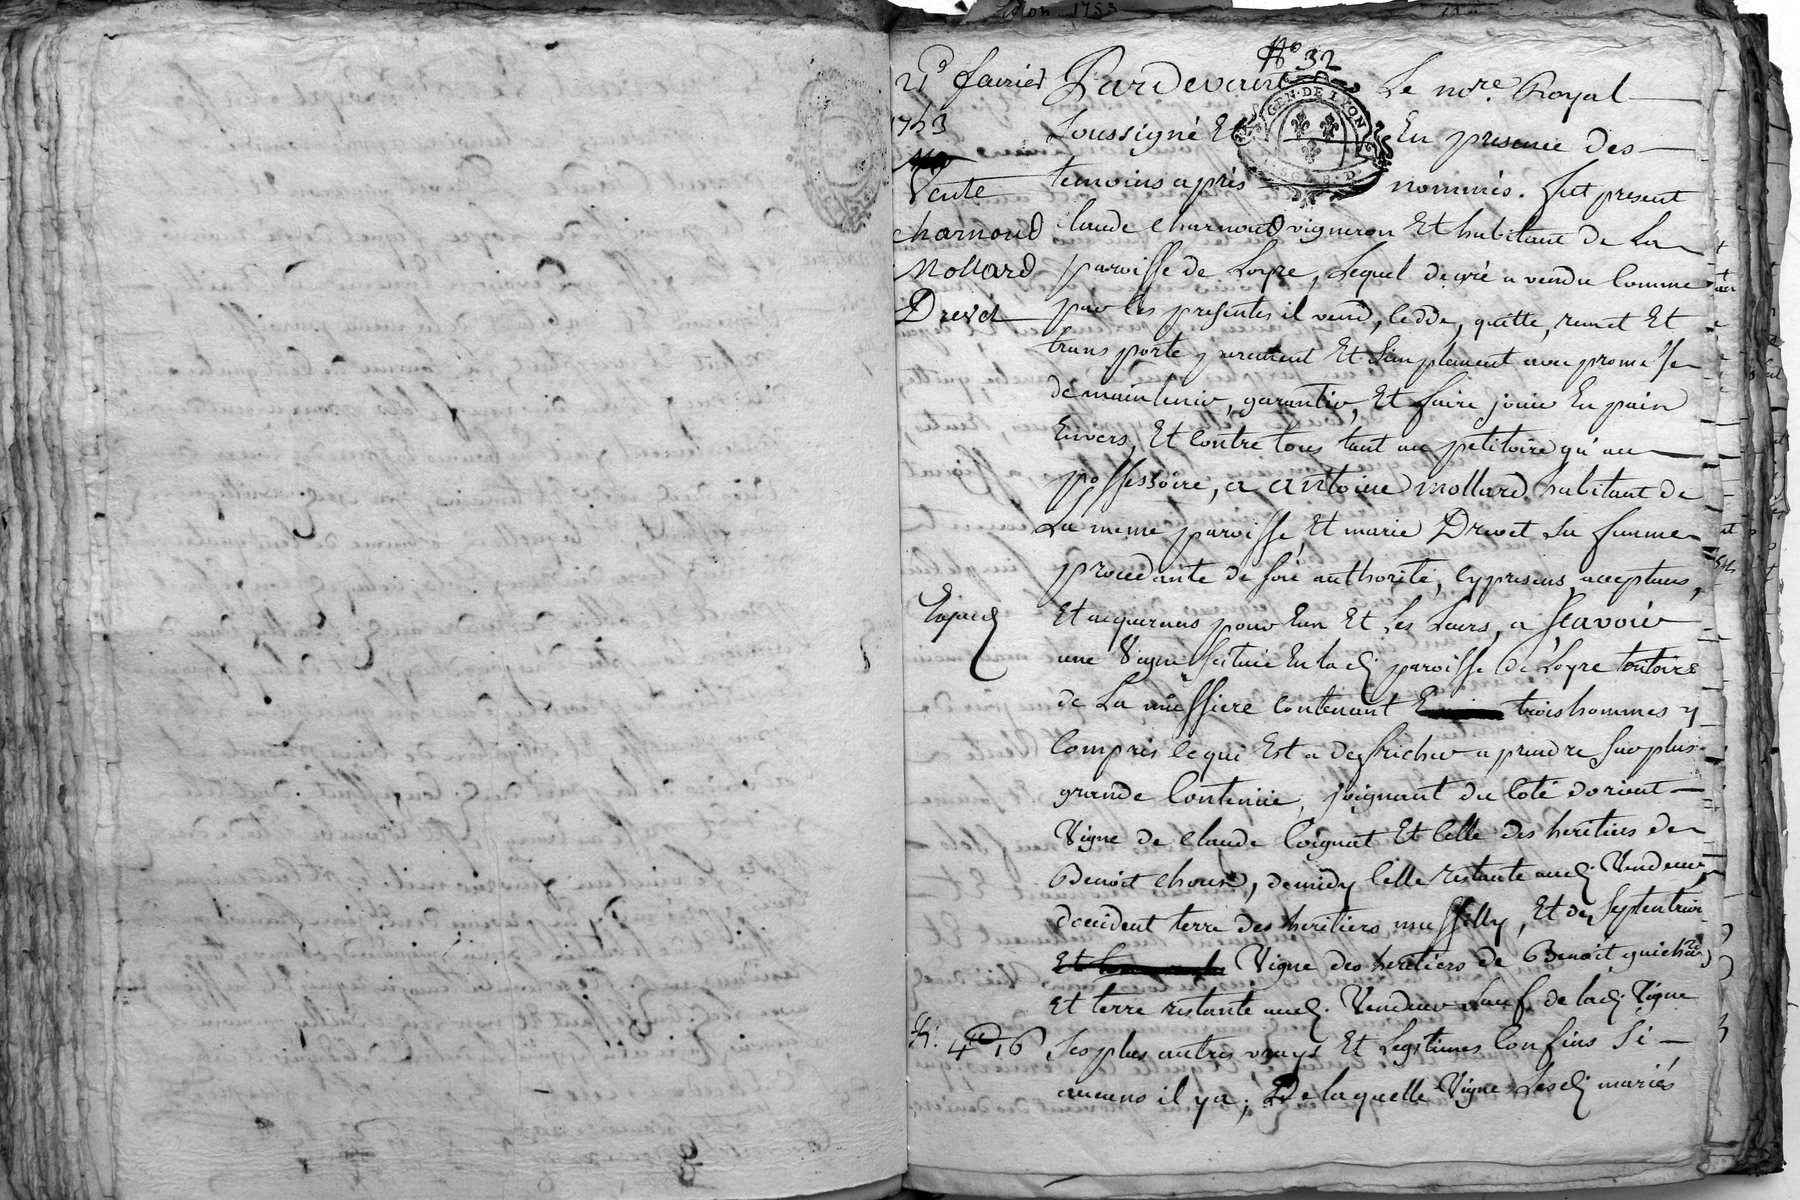 Lyon 1753
N° 32
21e fevrier
1753
Vente
charnoud
Mollard
Drevet
Expedié
Pardevant Le no.re Royal
soussigné Et En presence des
temoins après nommés. fut present
Claude charnoud vigneron Et habitant de La
paroisse de Loyre, Lequel de gré a vendu Comme
par Ces presentes il vend, Cedde, quitte, remet Et
transporte purement Et simplement avec promesse
de maintenir, garantir, Et faire jouir En paix
Envers, Et Contre tous tant au petitoire qu'au
possessoire, a antoine mollard habitant de
La meme paroisse Et marie Drevet sa femme
procedante de son authorité, Cypresens, acceptans,
Et acquerans pour Eux Et Les Leurs, a sçavoir
une Vigne scituée En lad. paroisse de Loyre territoire
de La mussiere Contenant trois hommes y
Compris Ce qui Est a defricher a prendre sur plus
grande Contenüe, joignant du Coté d'orient
Vigne de Claude Coignat Et Celle des heritiers de
Benoit choux, de midy Celle restante aud. Vendeur,
occident terre des heritiers mussilly, Et de septentrion
Vigne des heritiers de Benoit guichard
Et terre restante aud. Vendeur sauf de lad. Vigne
ses plus autres vrays Et Legitimes Confins si
aucuns il y a; De laquelle Vigne Lesd. mariés
GEN. DE LYON